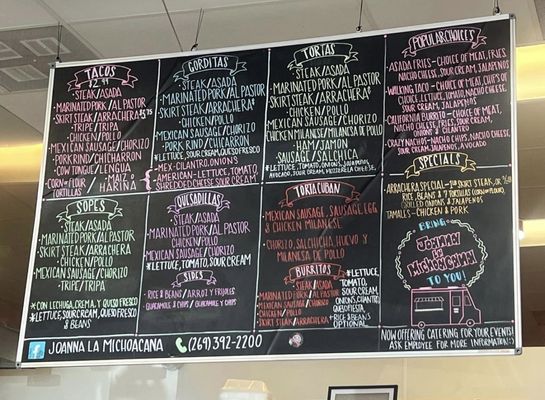 TACOS
$2.99
•STEAK/ASADA
•MARINATED PORK/AL PASTOR
•SKIRT STEAK/ARRACHERA
•TRIPE/TRIPA
•CHICKEN/POLLO
•MEXICAN SAUSAGE/CHORIZO
•PORK RIND/CHICHARRON
•COW TONGUE/LENGUA
•CORN OR FLOUR
TORTILLAS
MAIZ O
HARINA
SOPES
•STEAK/ASADA
•MARINATED PORK/AL PASTOR
•SKIRT STEAK/ARRACHERA
•CHICKEN/POLLO
•MEXICAN SAUSAGE/CHORIZO
•TRIPE/TRIPA
*CON LECHUGA, CREMA, Y QUESO FRESCO
*LETTUCE, SOUR CREAM, QUESO FRESCO
& BEANS
GORDITAS
•STEAK/ASADA
•MARINATED PORK/AL PASTOR
•SKIRT STEAK/ARRACHERA
•CHICKEN/POLLO
•MEXICAN SAUSAGE/CHORIZO
•PORK RIND/CHICHARRON
*LETTUCE, SOUR CREAM, QUESO FRESCO
•MEX-CILANTRO, ONIONS
•AMERICAN-LETTUCE, TOMATO,
SHREDDED CHEESE, SOUR CREAM
QUESADILLAS
•STEAK/ASADA
•MARINATED PORK/AL PASTOR
•CHICKEN/POLLO
•MEXICAN SAUSAGE/CHORIZO
*LETTUCE, TOMATO, SOUR CREAM
SIDES
•RICE & BEANS/ARROZ Y FRIJOLES
•GUACAMOLE & CHIPS/GUACAMOLE Y CHIPS
TORTAS
•STEAK/ASADA
•MARINATED PORK/AL PASTOR
•SKIRT STEAK/ARRACHERA
•CHICKEN/POLLO
•MEXICAN SAUSAGE/CHORIZO
•CHICKEN MILANESE/MILANESA DE POLLO
•HAM/JAMON
•SAUSAGE/SALCHICA
*LETTUCE, TOMATO, ONION, JALAPENOS
AVOCADO, SOUR CREAM, MOZZARELLA CHEESE
TORTA CUBAN
•MEXICAN SAUSAGE, SAUSAGE, EGG
& CHICKEN MILANESE
•CHORIZO, SALCHICHA, HUEVO Y
MILANESA DE POLLO
BURRITOS
•STEAK/ASADA
•MARINATED PORK/AL PASTOR
•MEXICAN SAUSAGE/CHORIZO
•CHICKEN/POLLO
•SKIRT STEAK/ARRACHERA
*LETTUCE,
TOMATO,
SOUR CREAM,
ONIONS, CILANTRO
QUESO FIESTA
*RICE & BEANS
OPTIONAL
POPULAR CHOICES
•ASADA FRIES-CHOICE OF MEAT, FRIES
NACHO CHEESE, SOUR CREAM, JALAPENOS
•WALKING TACO-CHOICE OF MEAT, CHIPS OF
CHOICE, LETTUCE, TOMATO, NACHO CHEESE,
SOUR CREAM, JALAPENOS
•CALIFORNIA BURRITO-CHOICE OF MEAT,
NACHO CHEESE, FRIES, SOUR CREAM,
ONIONS & CILANTRO
•CRAZY NACHOS-NACHO CHIPS, NACHO CHEESE,
SOUR CREAM, JALAPENOS
SPECIALS
•ARRACHERA SPECIAL-
SKIRT STEAK,
RICE, BEANS & 7 TORTILLAS (CORN OR FLOUR)
GRILLED ONIONS & JALAPENOS
TAMALES-CHICKEN & PORK
BRING
JOANNA
LA
MICHOACANA
TO YOU!
NOW OFFERING CATERING FOR YOUR EVENTS!
ASK EMPLOYEE FOR MORE INFORMATION!
f JOANNA LA MICHOACANA (269)392-2200